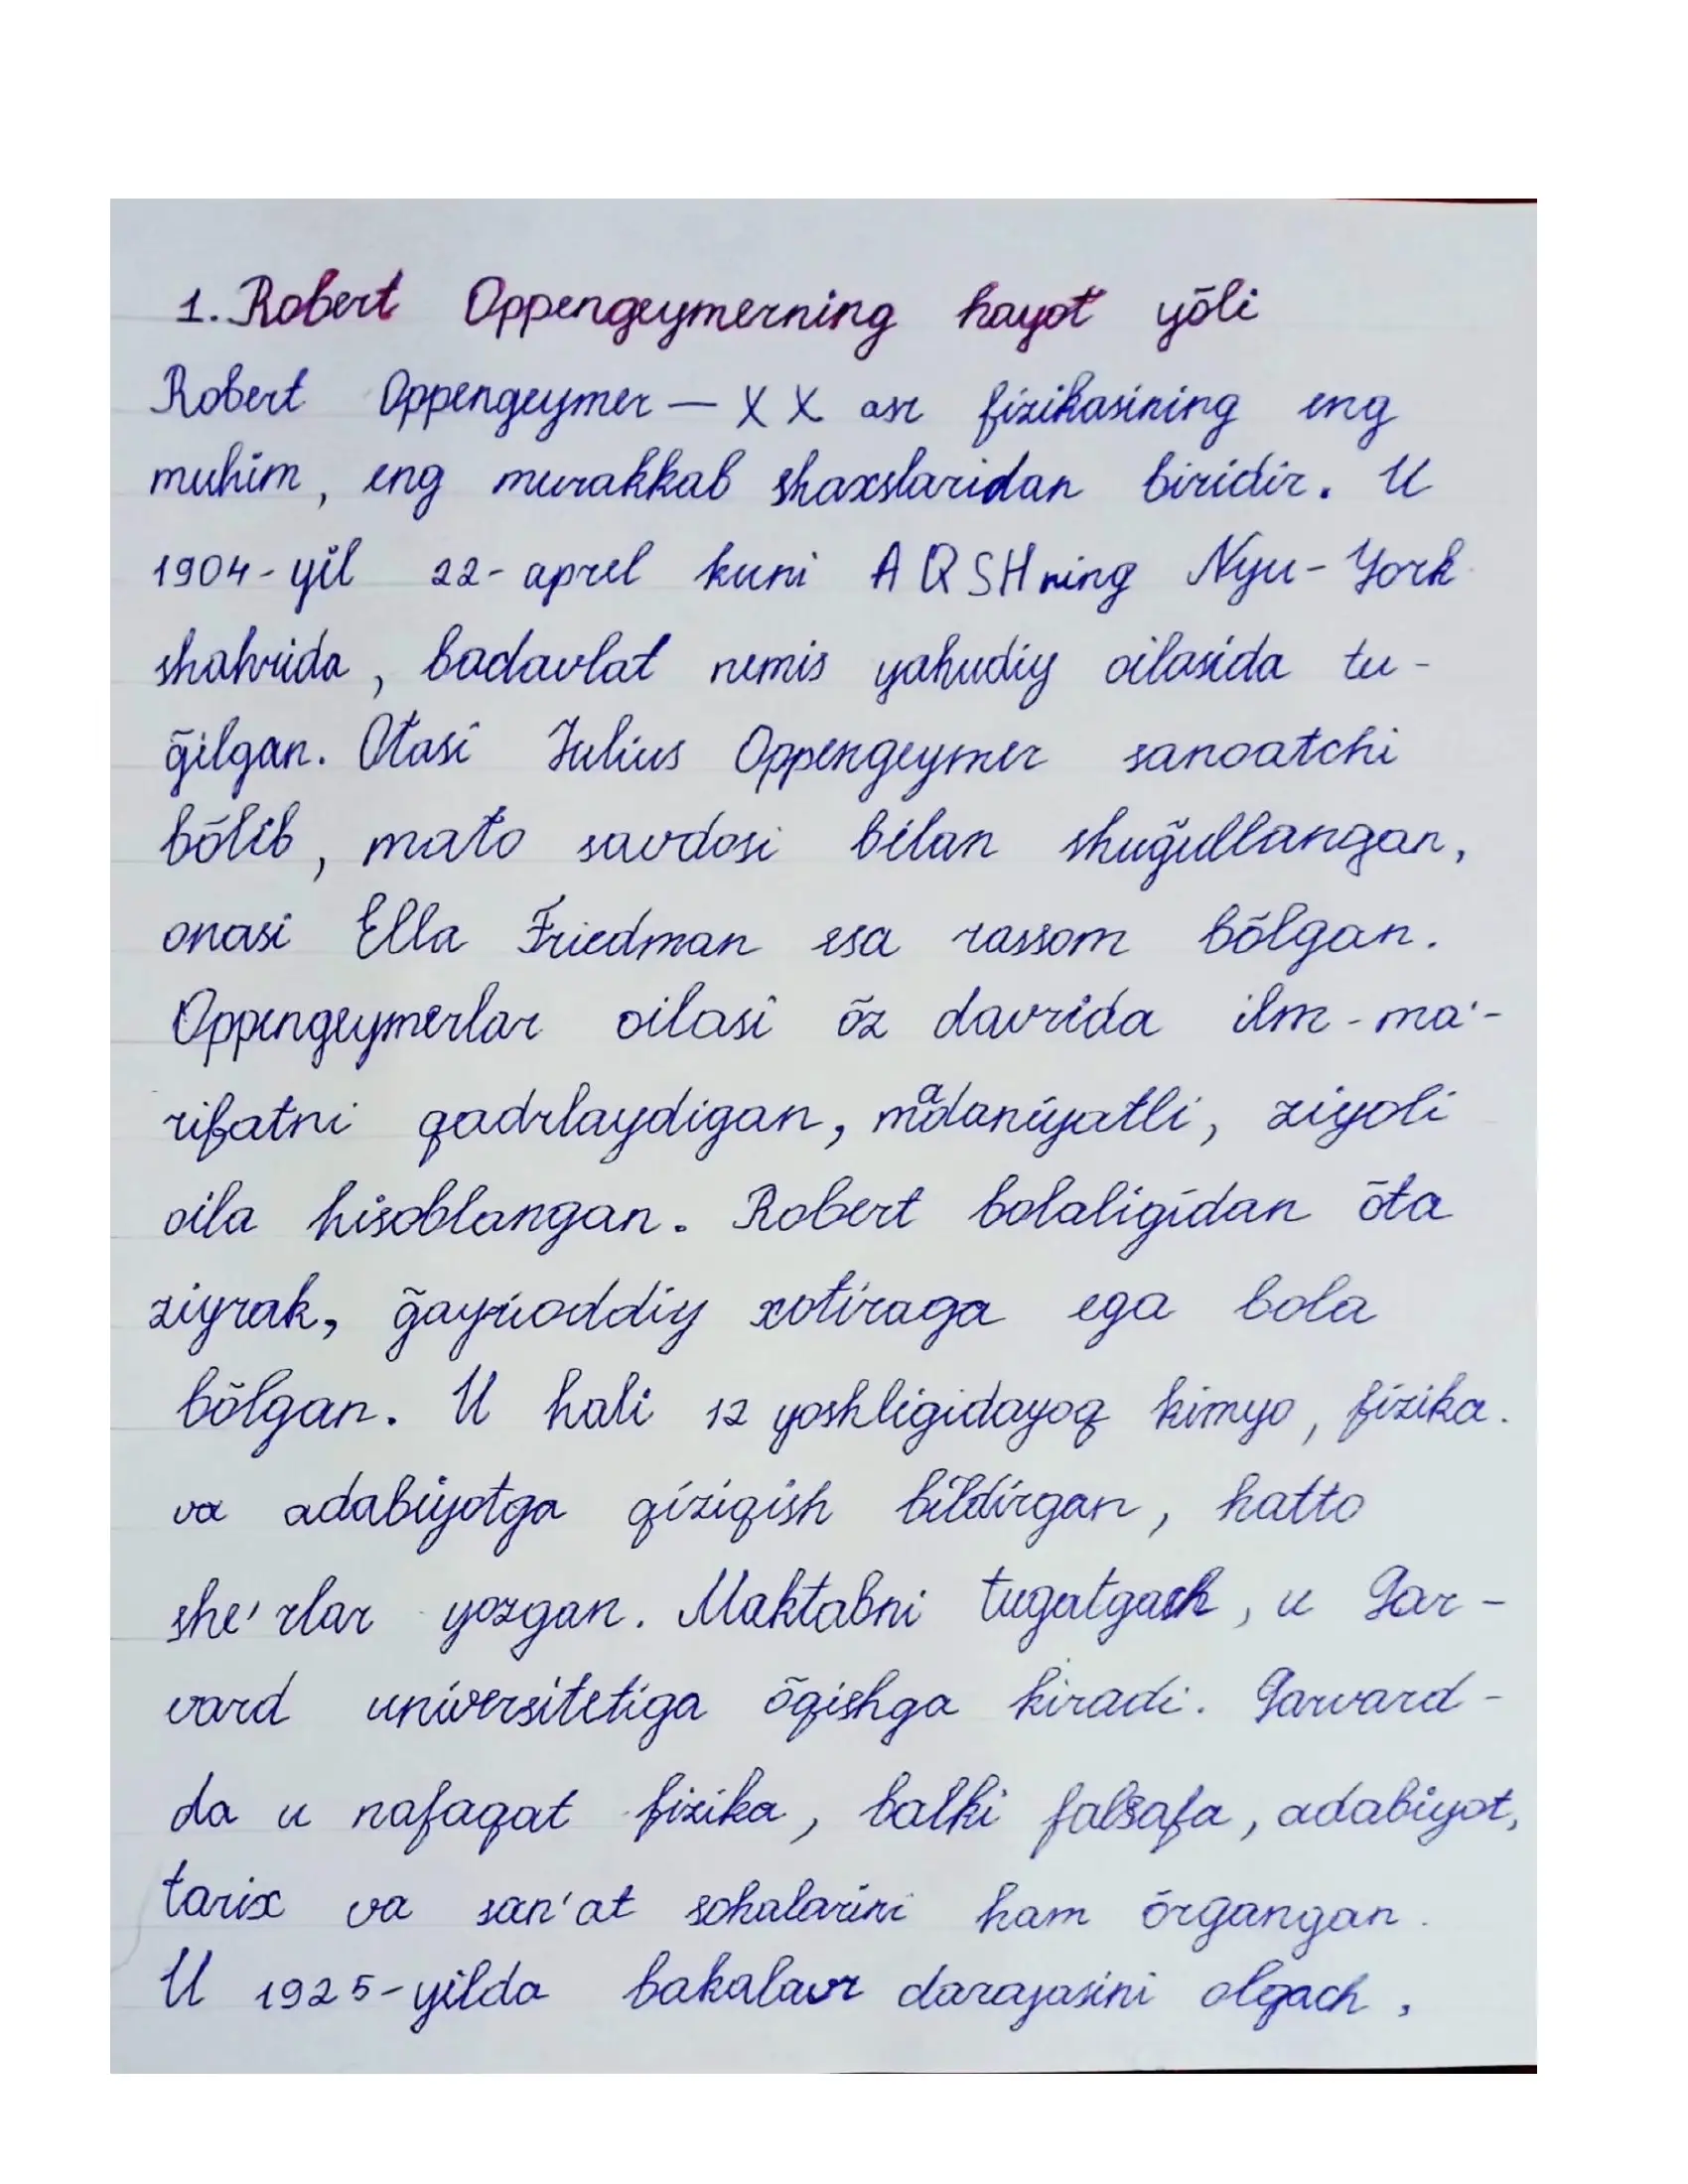 1. Robert Oppengeymerning hayot yõli
Robert Oppengeymer — XX asr fizikasining eng
muhim, eng murakkab shaxslaridan biridir. U
1904-yil 22-aprel kuni AQSHning Nyu-York
shahrida, badavlat nemis yahudiy oilasida tu-
g̃ilgan. Otasi Julius Oppengeymer sanoatchi
bõlib, mato savdosi bilan shug̃ullangan,
onasi Ella Friedman esa rassom bõlgan.
Oppengeymerlar oilasi õz davrida ilm-ma'-
rifatni qadrlaydigan, madaniyatli, ziyoli
oila hisoblangan. Robert bolaligidan õta
ziyrak, g̃ayrioddiy xotiraga ega bola
bõlgan. U hali 12 yoshligidayoq kimyo, fizika.
va adabiyotga qiziqish bildirgan, hatto
she'rlar yozgan. Maktabni tugatgach, u Gar-
vard universitetiga õqishga kiradi. Garvard-
da u nafaqat fizika, balki falsafa, adabiyot,
tarix va san'at sohalarini ham õrgangan.
U 1925-yilda bakalavr darajasini olgach,